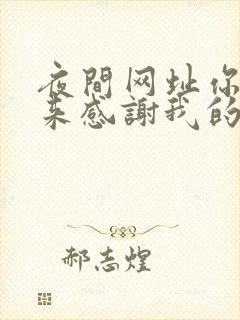 夜間网址你
来感謝我的
郝志煌